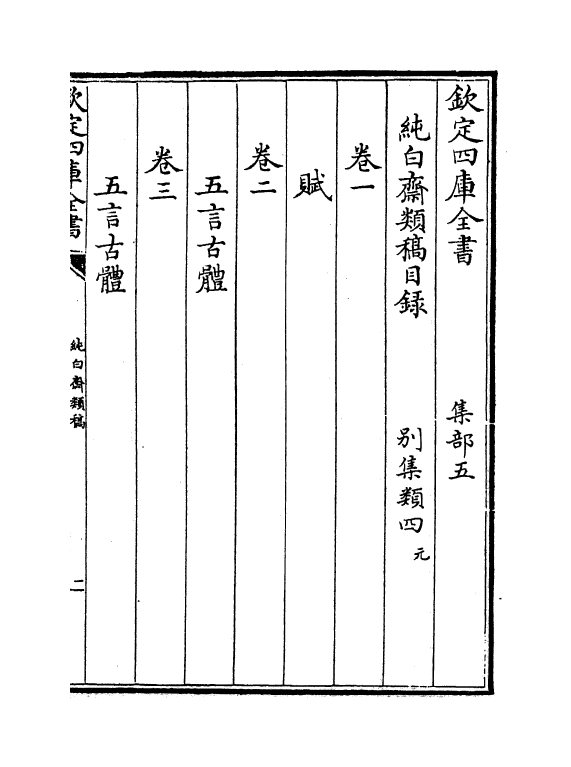 欽定四庫全書　　　集部五
純白齋類稿目録　　　別集類四元
卷一
賦
卷二
五言古體
卷三
五言古體
欽定四庫全書　　純白齋類稿　　二